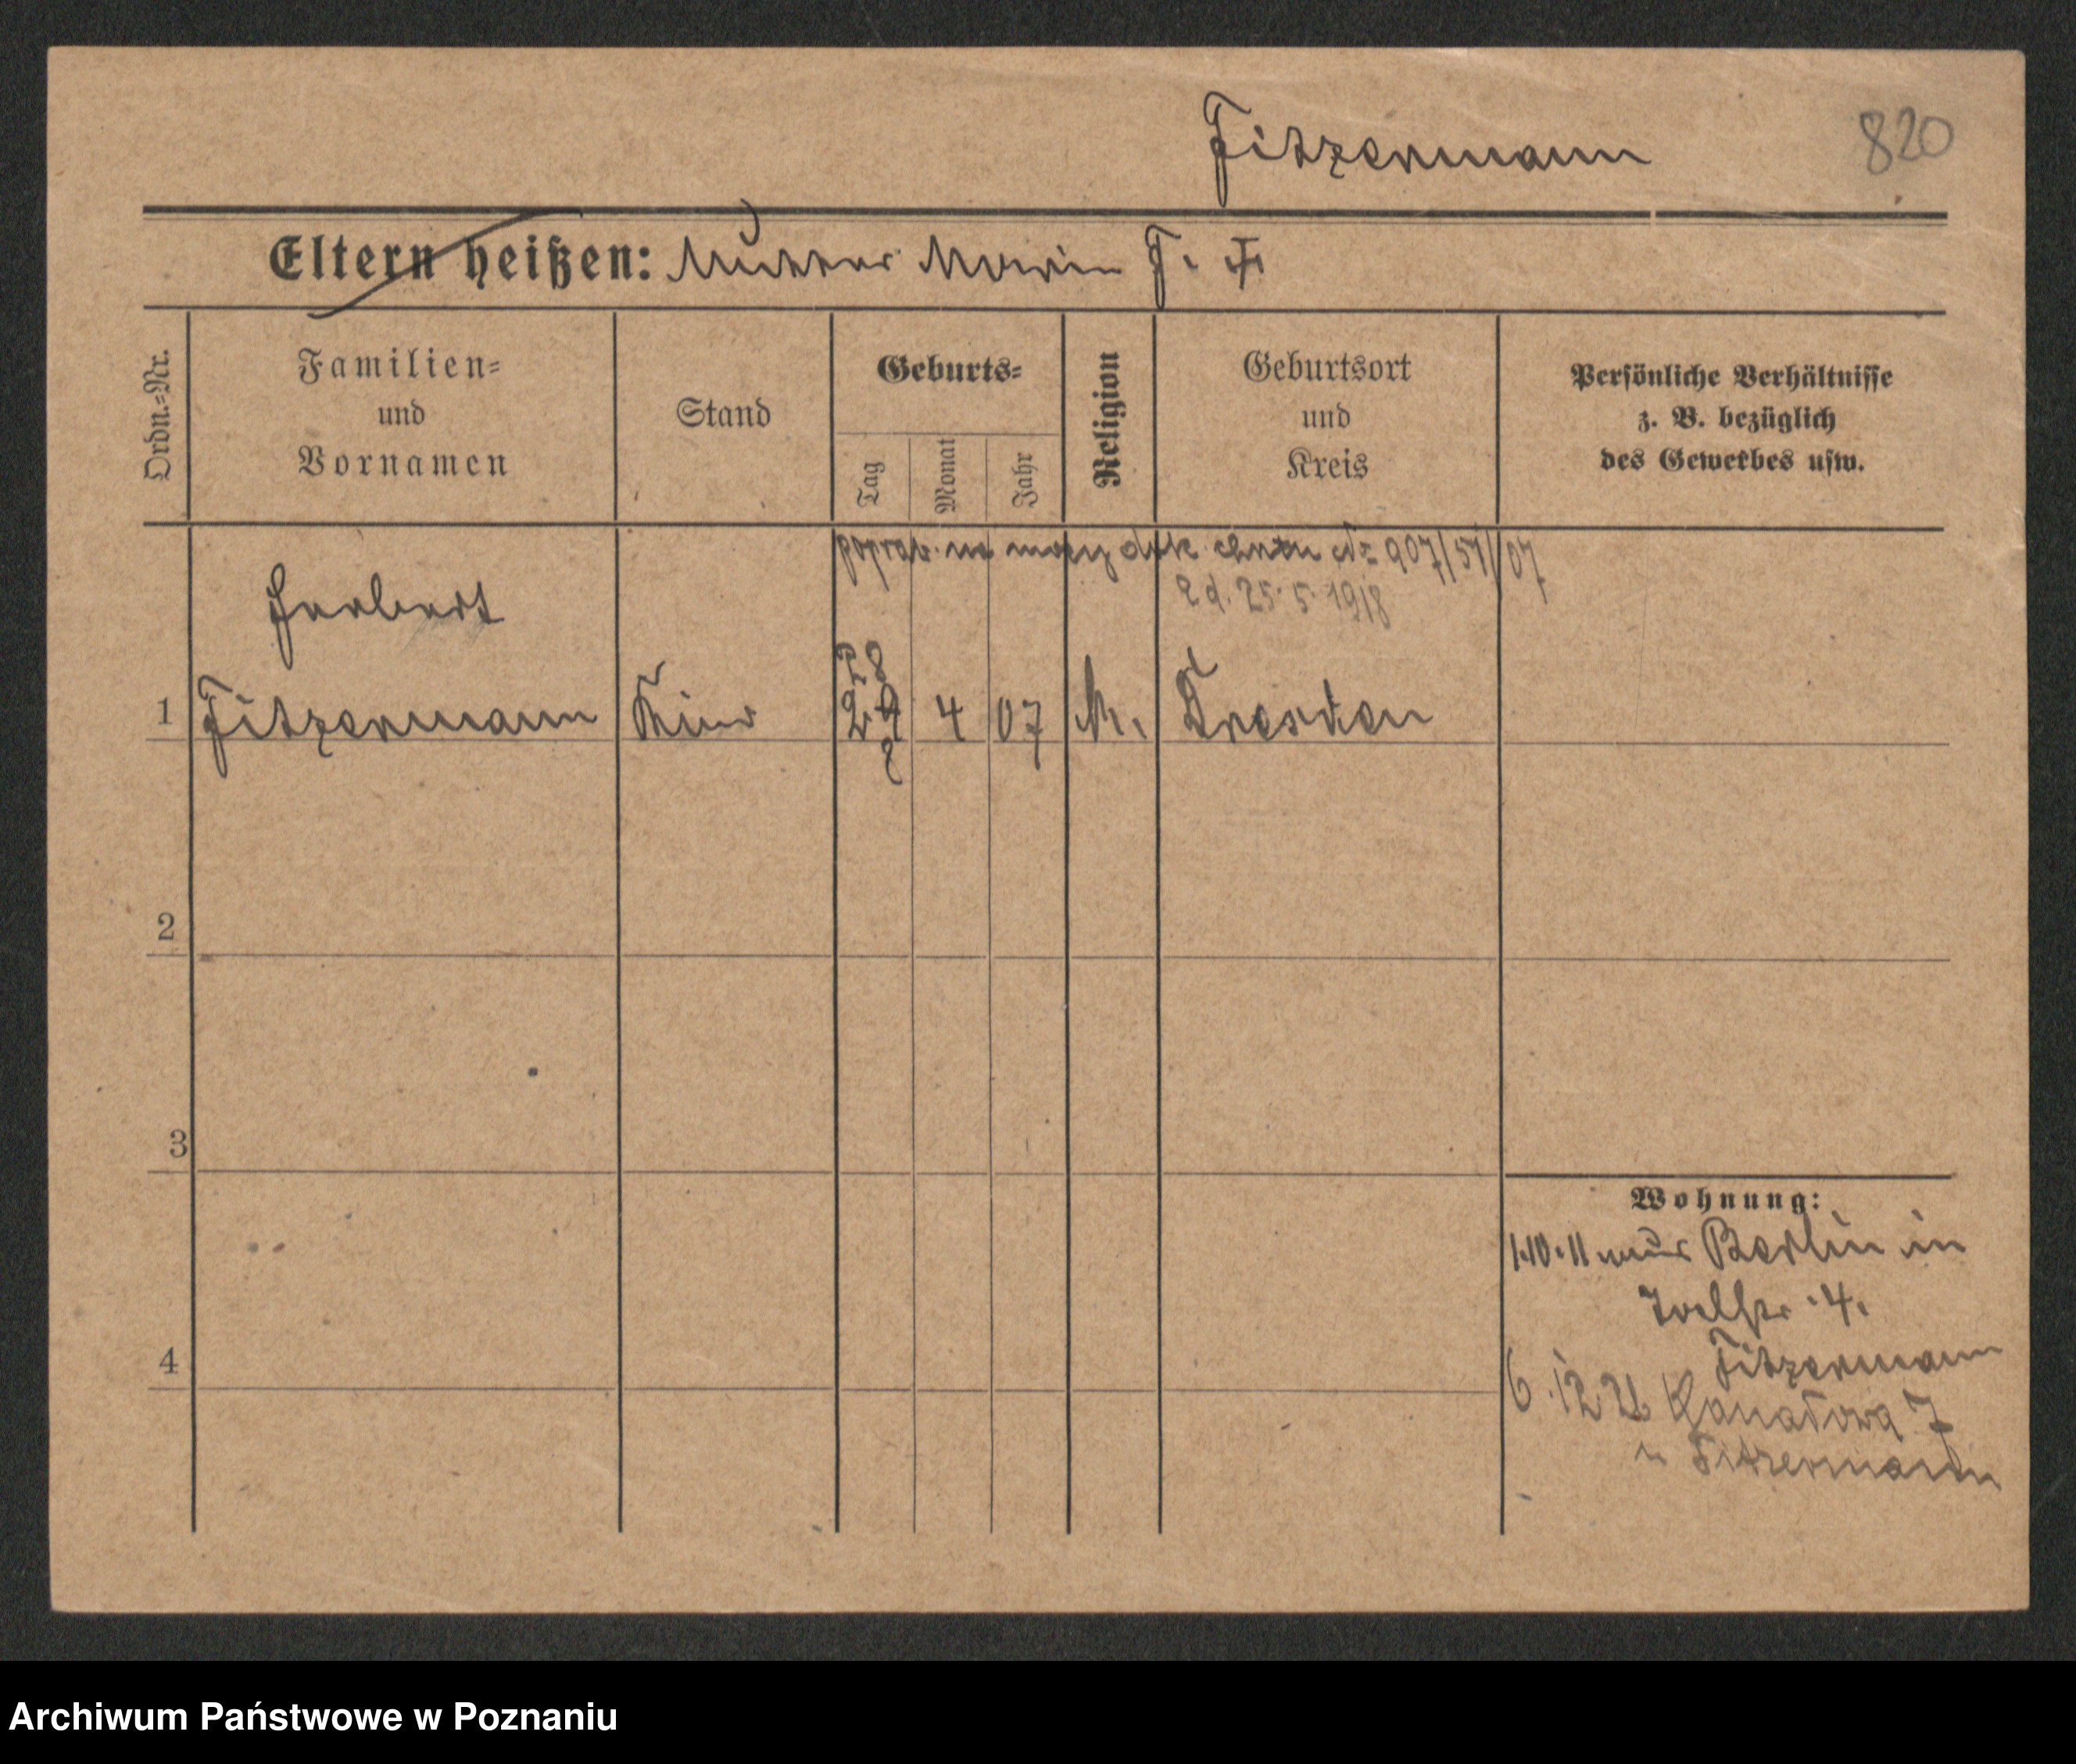 Fitzermann
820
Eltern heißen: Mutter Maria F. ‡
Ordn.-Nr.
Familien- und Vornamen
Stand
Geburts-
Tag
Monat
Jahr
Religion
Geburtsort und Kreis
Persönliche Verhältnisse
z. B. bezüglich
des Gewerbes usw.
popraw. na mocy 907/51/07
z d. 25. 5. 1918
Herbert
28
1 Fitzermann Kind 4 07 Dresden
2
3
4
Wohnung:
1.10.11 aus Berlin in
4.
Fitzermann
6.12.21 Kanałowa 7
u Fitzermann
Archiwum Państwowe w Poznaniu